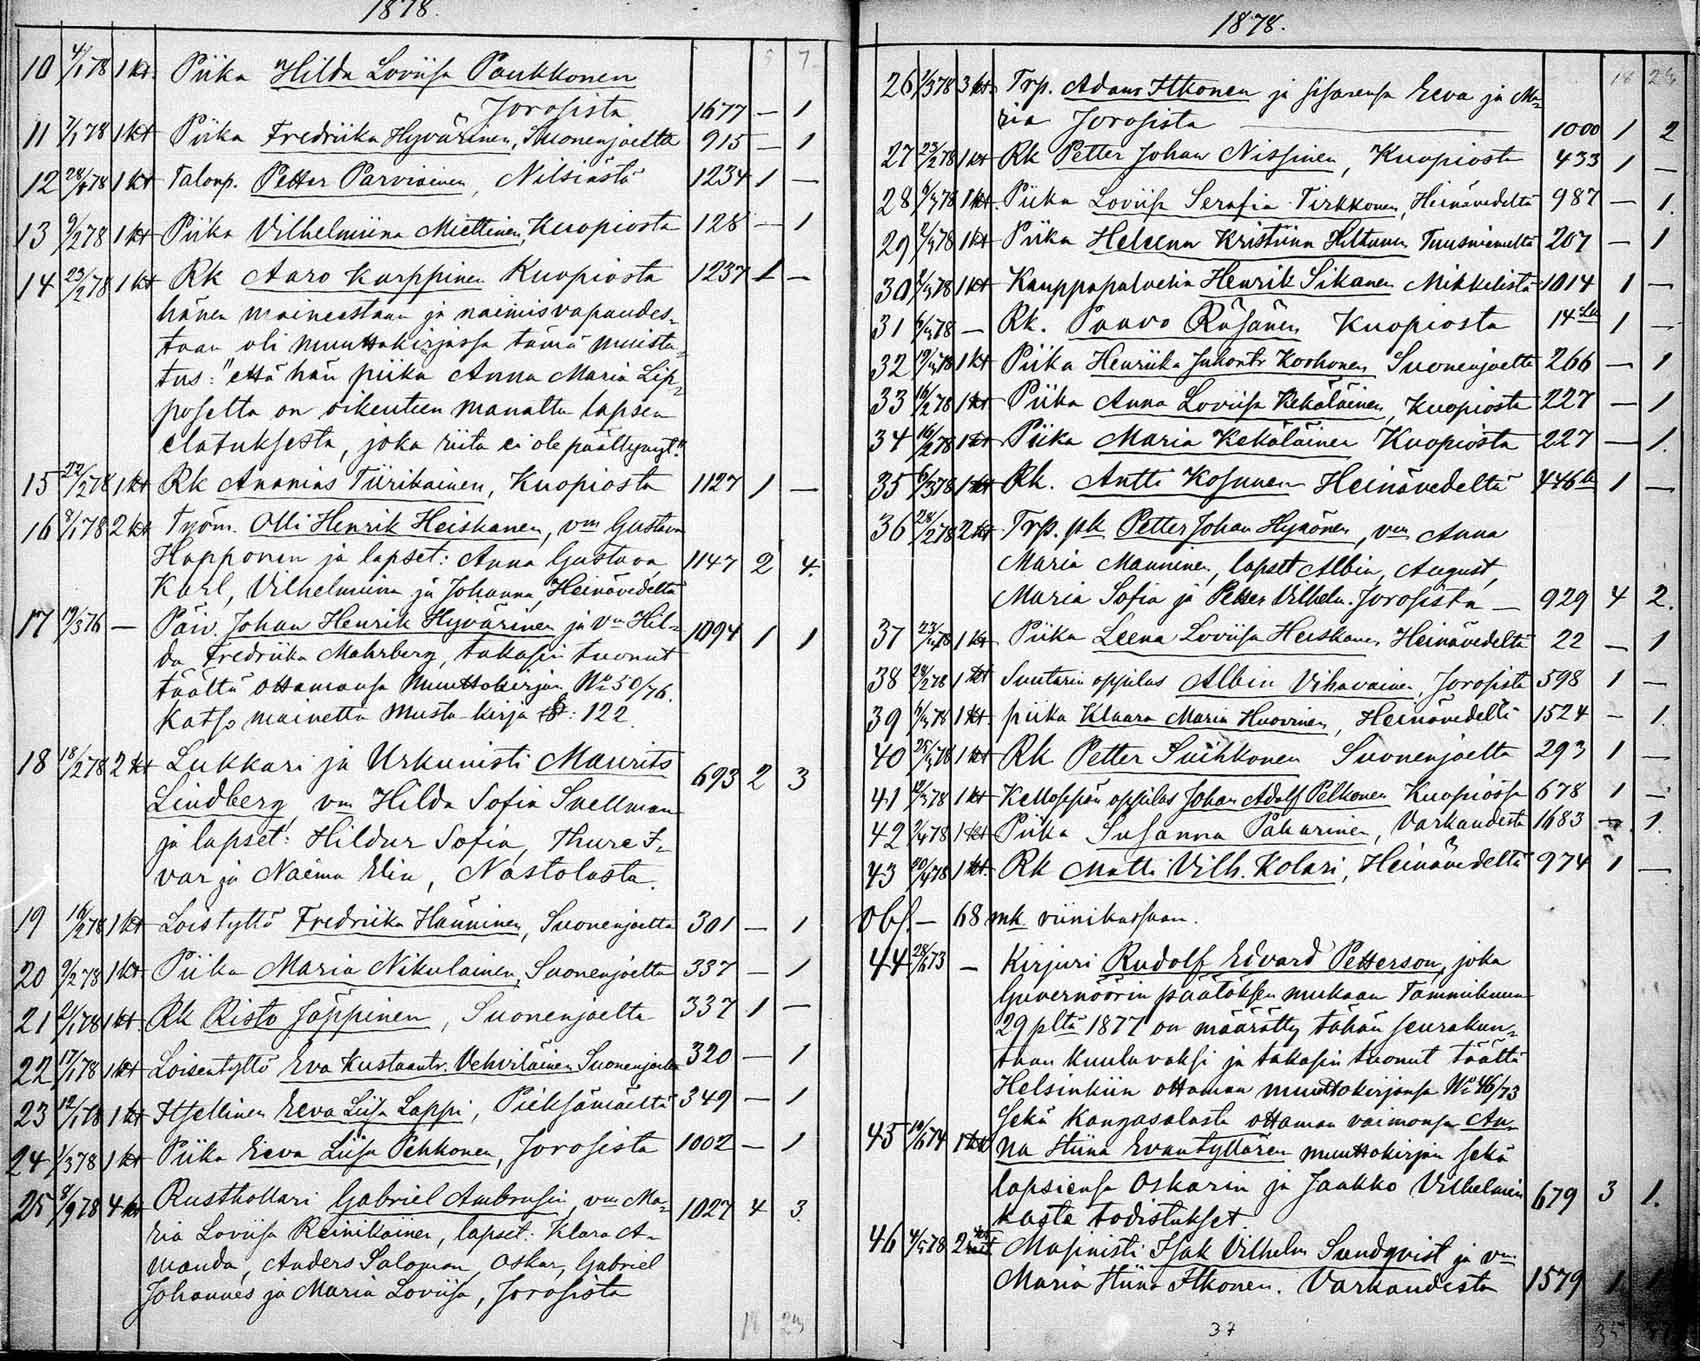 1878.
5 7.
10 4/1 78 1 kt. Piika Hilda Loviisa Paukkonen
Jorosista 1677 — 1
11 7/1 78 1 kt Piika Fredriika Hyvärinen, Suonenjoelta 915 — 1
12 28/1 78 1 kt Talonp. Petter Parviainen, Nilsiästä 1234 1 —
13 9/2 78 1 kt Piika Vilhelmiina Miettinen, Kuopiosta 128 — 1
14 23/2 78 1 kt Rk Aaro Karppinen Kuopiosta 1237 1 —
hänen maineestaan ja naimisvapaudes-
taan oli muuttokirjassa tämä muistu-
tus: "että hän piika Anna Maria Lip-
poselta on oikeuteen manattu lapsen
elatuksesta, joka riita ei ole päättynyt."
15 22/2 78 1 kt Rk Ananias Tiirikainen, Kuopiosta 1127 1 —
16 8/1 78 2 kt Työm. Olli Henrik Heiskanen, vm Gustava
Happonen ja lapset: Anna Gustava 1147 2 4.
Karl, Vilhelmiina ja Johanna, Heinävedeltä
17 19/3 76 — Päiv. Johan Henrik Hyvärinen ja vm Hil-
da Fredriika Mahrberg, takasin tuonut 1094 1 1
täältä ottamansa muuttokirjan No 50/76.
Katso mainetta musta-kirja §: 122.
18 18/2 78 2 kt Lukkari ja Urkunisti Maurits
Lindberg, vm Hilda Sofia Snellman 693 2 3
ja lapset: Hildur Sofia, Thure I-
var ja Naëma Elin, Nastolasta.
19 16/2 78 1 kt Loistyttö Fredriika Hänninen, Suonenjoelta 301 — 1
20 9/2 78 1 kt Piika Maria Nikulainen, Suonenjoelta 337 — 1
21 2/1 78 1 kt. Rk Risto Jäppinen, Suonenjoelta 337 1 —
22 17/1 78 1 kt Loisentyttö Eva Kustaantr. Vehviläinen Suonenjoelta 320 — 1
23 12/1 78 1 kt Itsellinen Eeva Liisa Lappi, Pieksämäeltä 349 — 1
24 1/3 78 1 kt Piika Eeva Liisa Pehkonen, Jorosista 1002 — 1
25 8/9 78 4 kt Rusthollari Gabriel Ambrusin, vm Ma- 1027 4 3.
ria Loviisa Reinikainen, lapset: Klara A-
manda, Anders Salomon, Oskar, Gabriel
Johannes ja Maria Loviisa, Jorosista
18 23
1878.
18 23
26 1/3 78 3 kt. Trp. Adam Itkonen ja sisarensa Eeva ja Ma-
ria Jorosista 1000 1 2
27 23/2 78 1 kt Rk Petter Johan Nissinen, Kuopiosta 433 1 —
28 1 kt. Piika Loviisa Serafia Tirkkonen, Heinävedeltä 987 — 1.
29 1 kt Piika Heleena Kristiina Hiltunen Tuusniemeltä 207 — 1
30 1 kt Kauppapalvelia Henrik Sikanen Mikkelistä 1014 1 —
31 — Rk. Paavo Räsänen Kuopiosta 14 1 —
32 1 kt Piika Henriika Juhontr Korhonen Suonenjoelta 266 — 1
33 16/2 78 1 kt Piika Anna Loviisa Kekäläinen, Kuopiosta 227 — 1
34 16/2 78 1 kt Piika Maria Kekäläinen Kuopiosta 227 — 1.
35 6/3 78 1 kt Rk. Antti Kosunen Heinävedeltä 446 1 —
36 28/2 78 2 kt Trp. pk Petter Johan Hynönen, vm Anna
Maria Manninen, lapset Albin, August,
Maria Sofia ja Petter Vilhelm. Jorosista — 929 4 2.
37 1 kt Piika Leena Loviisa Heiskanen Heinävedeltä 22 — 1
38 28/2 78 1 kt Suutarin oppilas Albin Vihavainen, Jorosista 598 1 —
39 1 kt piika Klaara Maria Huovinen, Heinävedeltä 1524 — 1.
40 1 kt Rk Petter Suihkonen Suonenjoelta 293 1 —
41 1 kt Kellosepän oppilas Johan Adolf Pelkonen Kuopiossa 678 1 —
42 1 kt Piika Susanna Pakarinen, Varkaudesta 1683 — 1.
43 20/4 78 1 kt Rk Matti Vilh. Kolari, Heinävedeltä 974 1 —
Obs. — 68 mk viinikassaan.
44 28/6 73 — Kirjuri Rudolf Edvard Petterson, joka
Guvernöörin päätöksen mukaan Tammikuun
29 pltä 1877 on määrätty tähän seurakun-
taan kuuluvaksi ja takasin tuonut täältä
Helsinkiin ottaman muuttokirjansa No 46/73
sekä Kangasalasta ottaman vaimonsa An-
45 19/6 74 1 kt na Stiina Evantyttären muuttokirjan sekä
lapsiensa Oskarin ja Jaakko Vilhelmin 679 3 1.
kaste todistukset.
46 4/5 78 2 kt Masinisti Isak Vilhelm Sundqvist ja vm
Maria Stiina Itkonen. Varkaudesta 1579 1 1
37